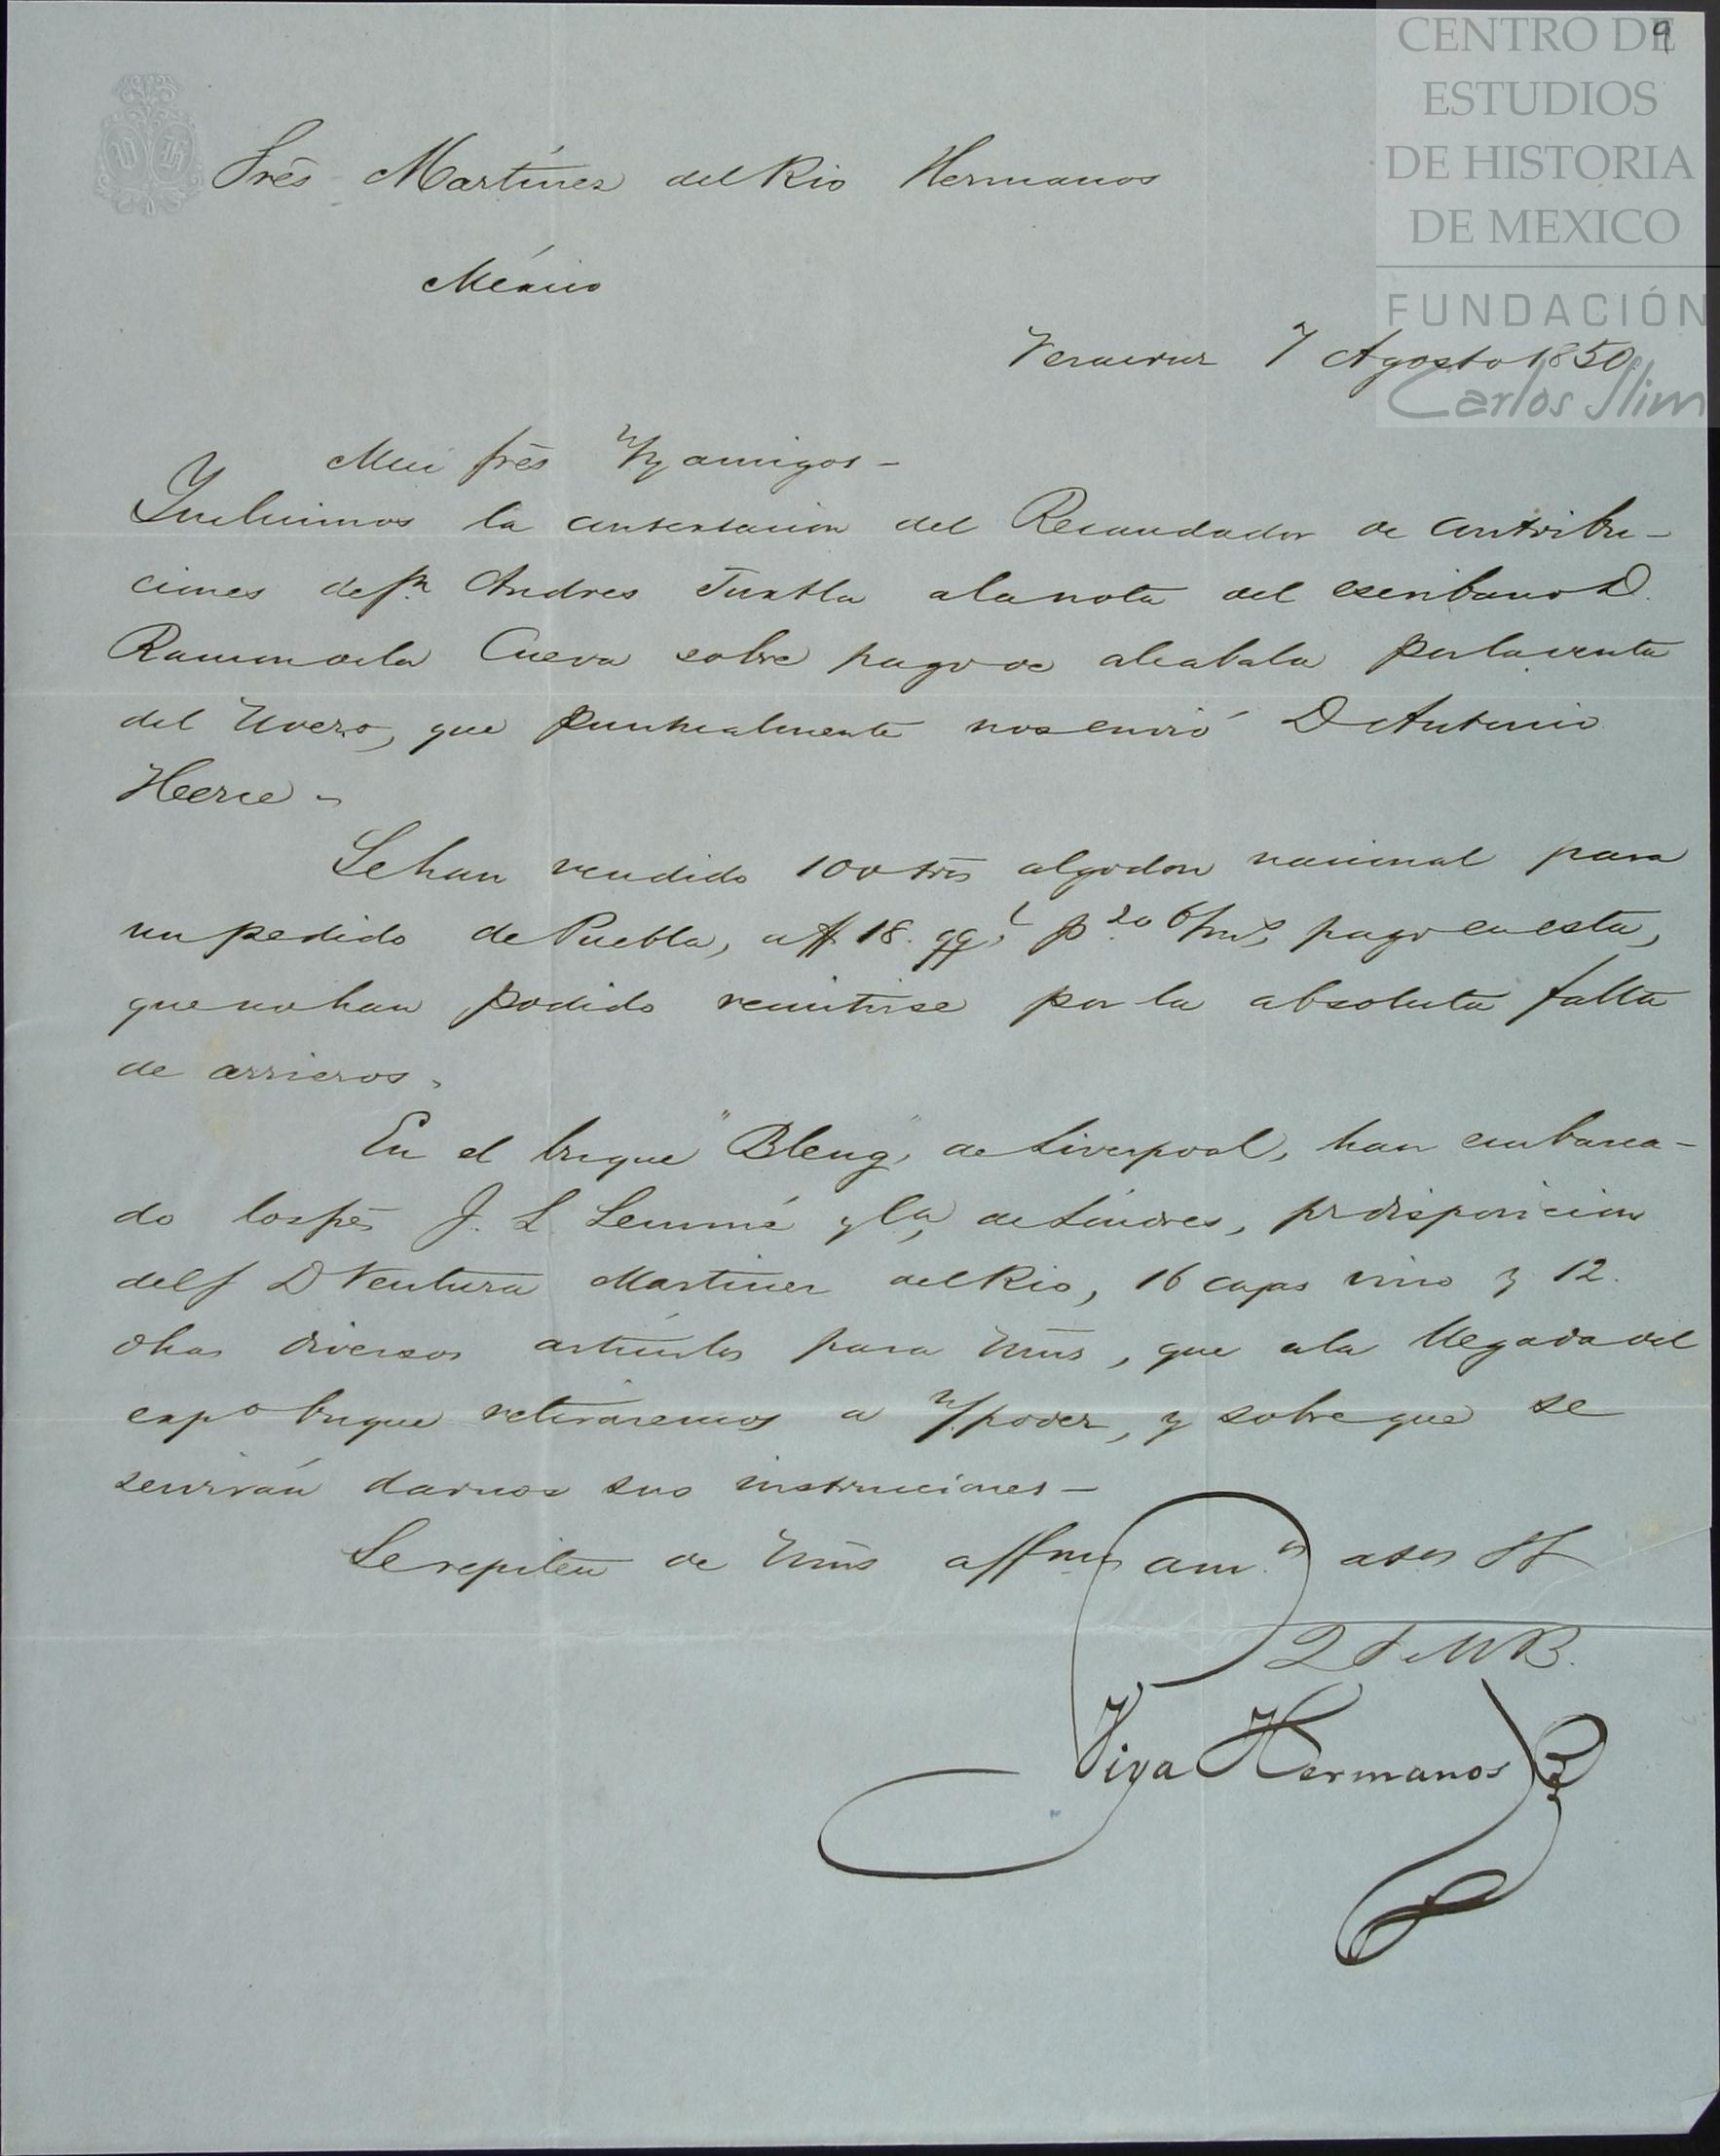 CENTRO DE
ESTUDIOS
DE HISTORIA
DE MEXICO
FUNDACIÓN
Carlos Slim
9
Srês Martínez del Rio Hermanos
México
Veracruz 7 Agosto 1850.
Mui srês n/ amigos –
Incluimos la contestacion del Recaudador de contribu-
ciones de Sn Andres Tuxtla a la nota del escribano D.
Ramon de la Cueva sobre pago de alcabala por la venta
del Uvero, que puntualmente nos envió D Antonio
Herce –
Se han vendido 100 algodon nacional para
un pedido de Puebla, a $ 18. qql pago en esta,
que no han podido remitirse por la absoluta falta
de arrieros.
En el brique "Bleng", de Liverpool, han embarca-
do los srês J. L. Lemmé y Ca, de Lóndres, pr disposicion
del S D Ventura Martinez del Rio, 16 cajas vino y 12.
dhas diversos artículos para Umês, que a la llegada del
expo brique retiraremos a n/ poder, y sobre que se
servirán darnos sus instrucciones –
Se repiten de Umês affmos amos atos SS
Q S M B.
Viya Hermanos